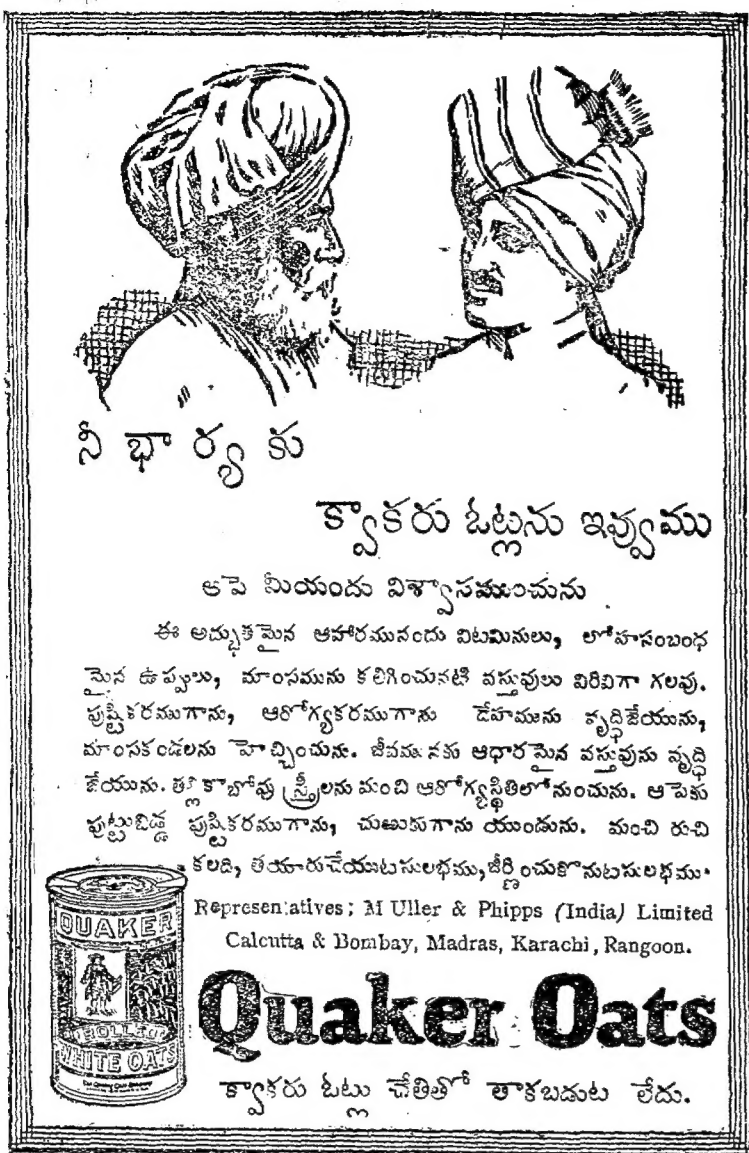 నీ భార్యకు
క్వాకరు ఓట్లను ఇవ్వుము
ఆపె మీయందు విశ్వాసముంచును
ఈ అద్భుతమైన ఆహారమునందు విటమినులు, లోహసంబంధ
మైన ఉప్పులు, మాంసమును కలిగించునటి వస్తువులు విరివిగా గలవు.
పుష్టికరముగాను, ఆరోగ్యకరముగాను దేహమును వృద్ధిజేయును,
మాంసకండలను హెచ్చించును. జీవమునకు ఆధారమైన వస్తువును వృద్ధి
జేయును. తల్లికాబోవు స్త్రీలను మంచి ఆరోగ్యస్థితిలోనుంచును. ఆపెకు
పుట్టుబిడ్డ పుష్టికరముగాను, చుఱుకుగాను యుండును. మంచి రుచి
కలది, తయారుచేయుటసులభము, జీర్ణించుకొనుటసులభము.
Representatives; M Uller & Phipps (India) Limited
Calcutta & Bombay, Madras, Karachi, Rangoon.
QUAKER
WHITE OATS
Quaker Oats
క్వాకరు ఓట్లు చేతితో తాకబడుట లేదు.